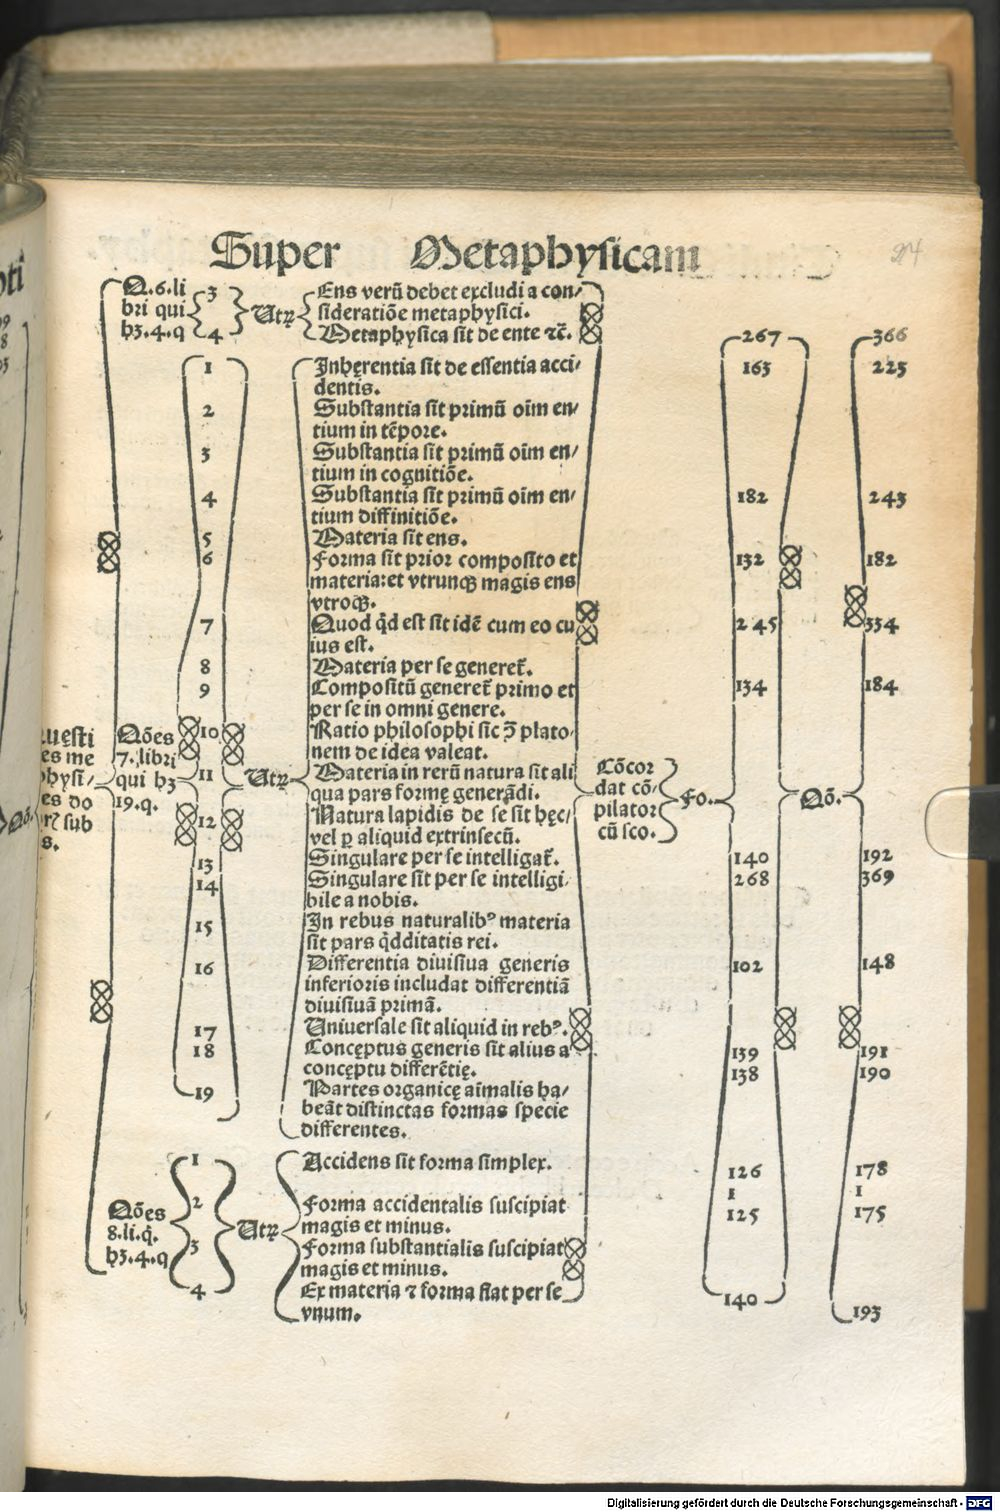 Super Metaphysicam
Q.6.li
bri qui
hꝫ.4.q
3
4
Utꝝ
Ens verū debet excludi a con/
sideratiōe metaphysici.
Metaphysica sit de ente ⁊c̄.
267
366
1
Inhęrentia sit de essentia acci/
dentis.
163
225
2
Substantia sit primū oīm en/
tium in tēpore.
3
Substantia sit primū oīm en/
tium in cognitiōe.
4
Substantia sit primū oīm en/
tium diffinitiōe.
182
243
5
Materia sit ens.
6
Forma sit prior composito et
materia: et vtrunqꝫ magis ens
vtroqꝫ.
132
182
7
Quod q̇d est sit idē cum eo cu
ius est.
245
334
8
Materia per se generet̄.
9
Compositū generet̄ primo et
per se in omni genere.
134
184
10
Ratio philosophi sic ↄ̄ plato/
nem de idea valeat.
Qōes
7. libri
qui hꝫ
19.q.
11
Utꝝ
Materia in rerū natura sit ali
qua pars formę generādi.
Cōcor
dat cō/
pilator
cū sco.
Fo.
Qō.
12
Natura lapidis de se sit hęc/
vel ꝑ aliquid extrinsecū.
13
Singulare per se intelligat̄.
140
192
14
Singulare sit per se intelligi/
bile a nobis.
268
369
15
In rebus naturalibꝰ materia
sit pars q̇dditatis rei.
16
Differentia diuisiua generis
inferioris includat differentiā
diuisiuā primā.
102
148
17
Uniuersale sit aliquid in rebꝰ.
18
Concęptus generis sit alius a
concęptu differētię.
139
191
138
190
19
Partes organicę aīmalis ha/
beāt distinctas formas specie
differentes.
Qōes
8.li.q̇.
hꝫ.4.q
1
Utꝝ
Accidens sit forma simplex.
126
178
1
1
2
Forma accidentalis suscipiat
magis et minus.
125
175
3
Forma substantialis suscipiat
magis et minus.
4
Ex materia ⁊ forma fiat per se
vnum.
140
193
Digitalisierung gefördert durch die Deutsche Forschungsgemeinschaft - DFG